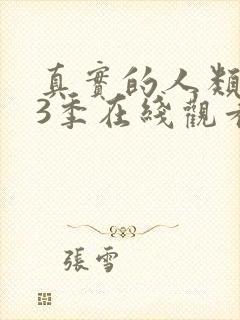 真實的人類
3季在綫觀看
張雪